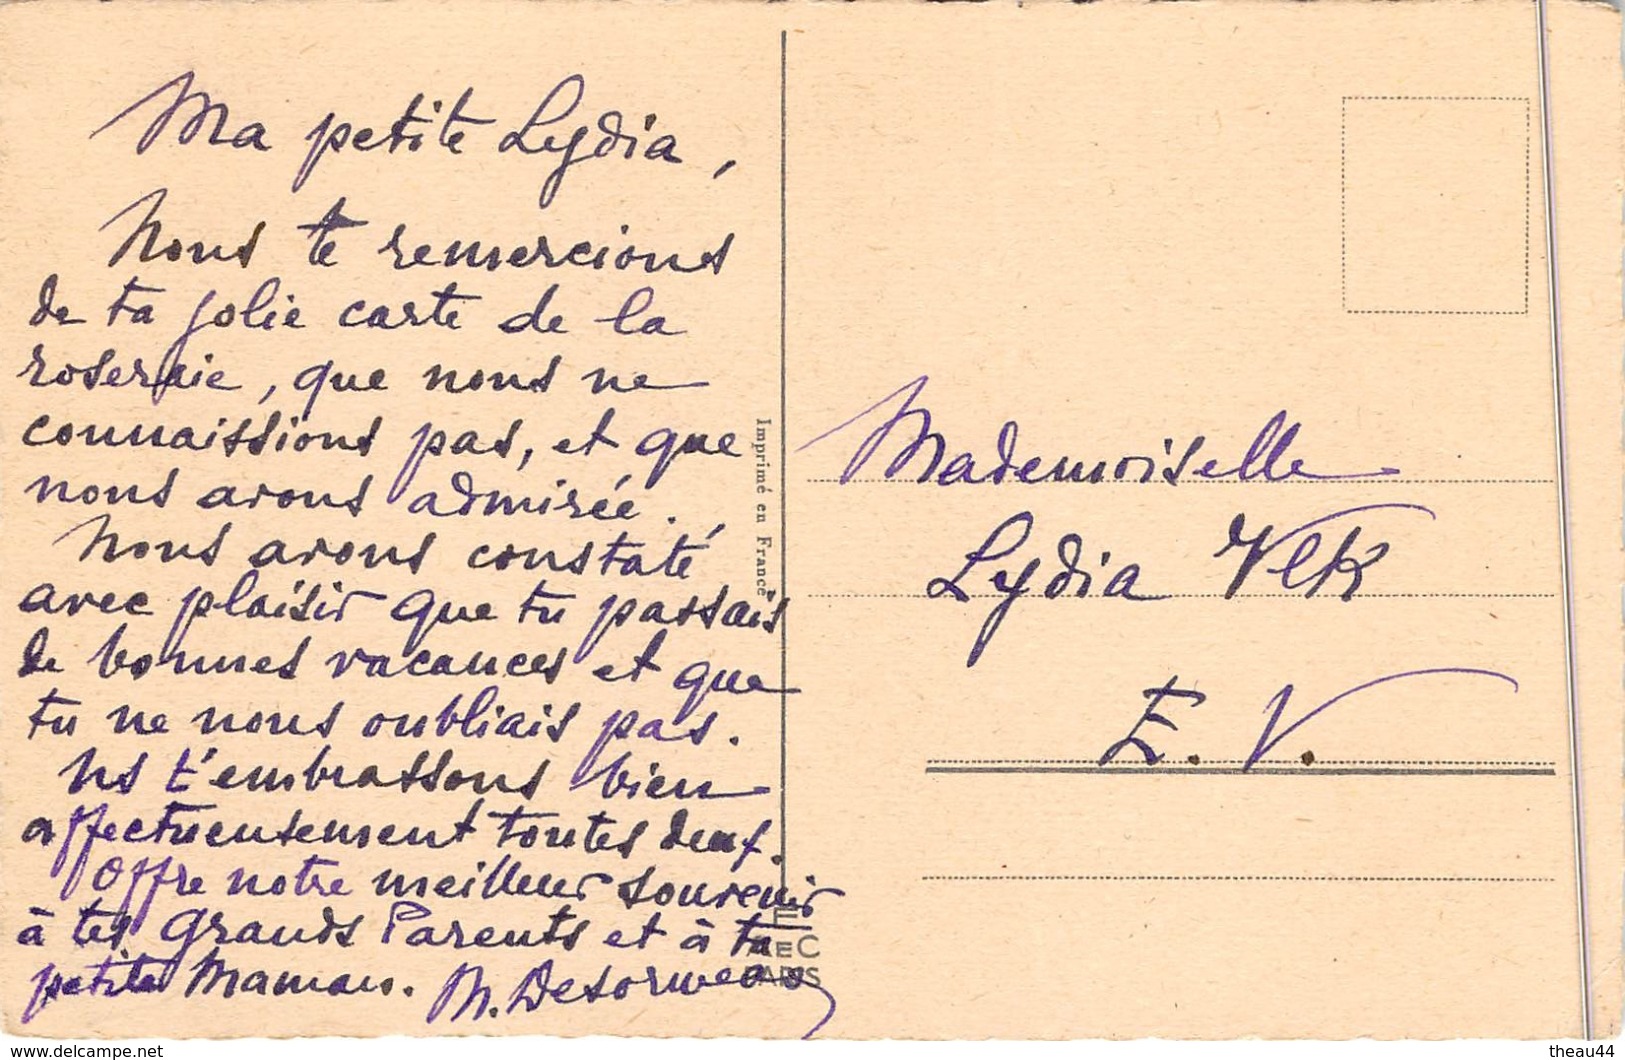 Ma petite Lydia,
Nous te remercions
de ta jolie carte de la
roseraie, que nous ne
connaissions pas, et que
nous avons admirée.
Nous avons constaté
avec plaisir que tu passais
de bonnes vacances et que
tu ne nous oubliais pas.
Ns t'embrassons bien
affectueusement toutes deux.
Offre notre meilleur souvenir
à tes Grands Parents et à ta
petite Maman. M.
Imprimé en France
Mademoiselle
Lydia Vlk
E. V.
PARIS
www.delcampe.net
theau44